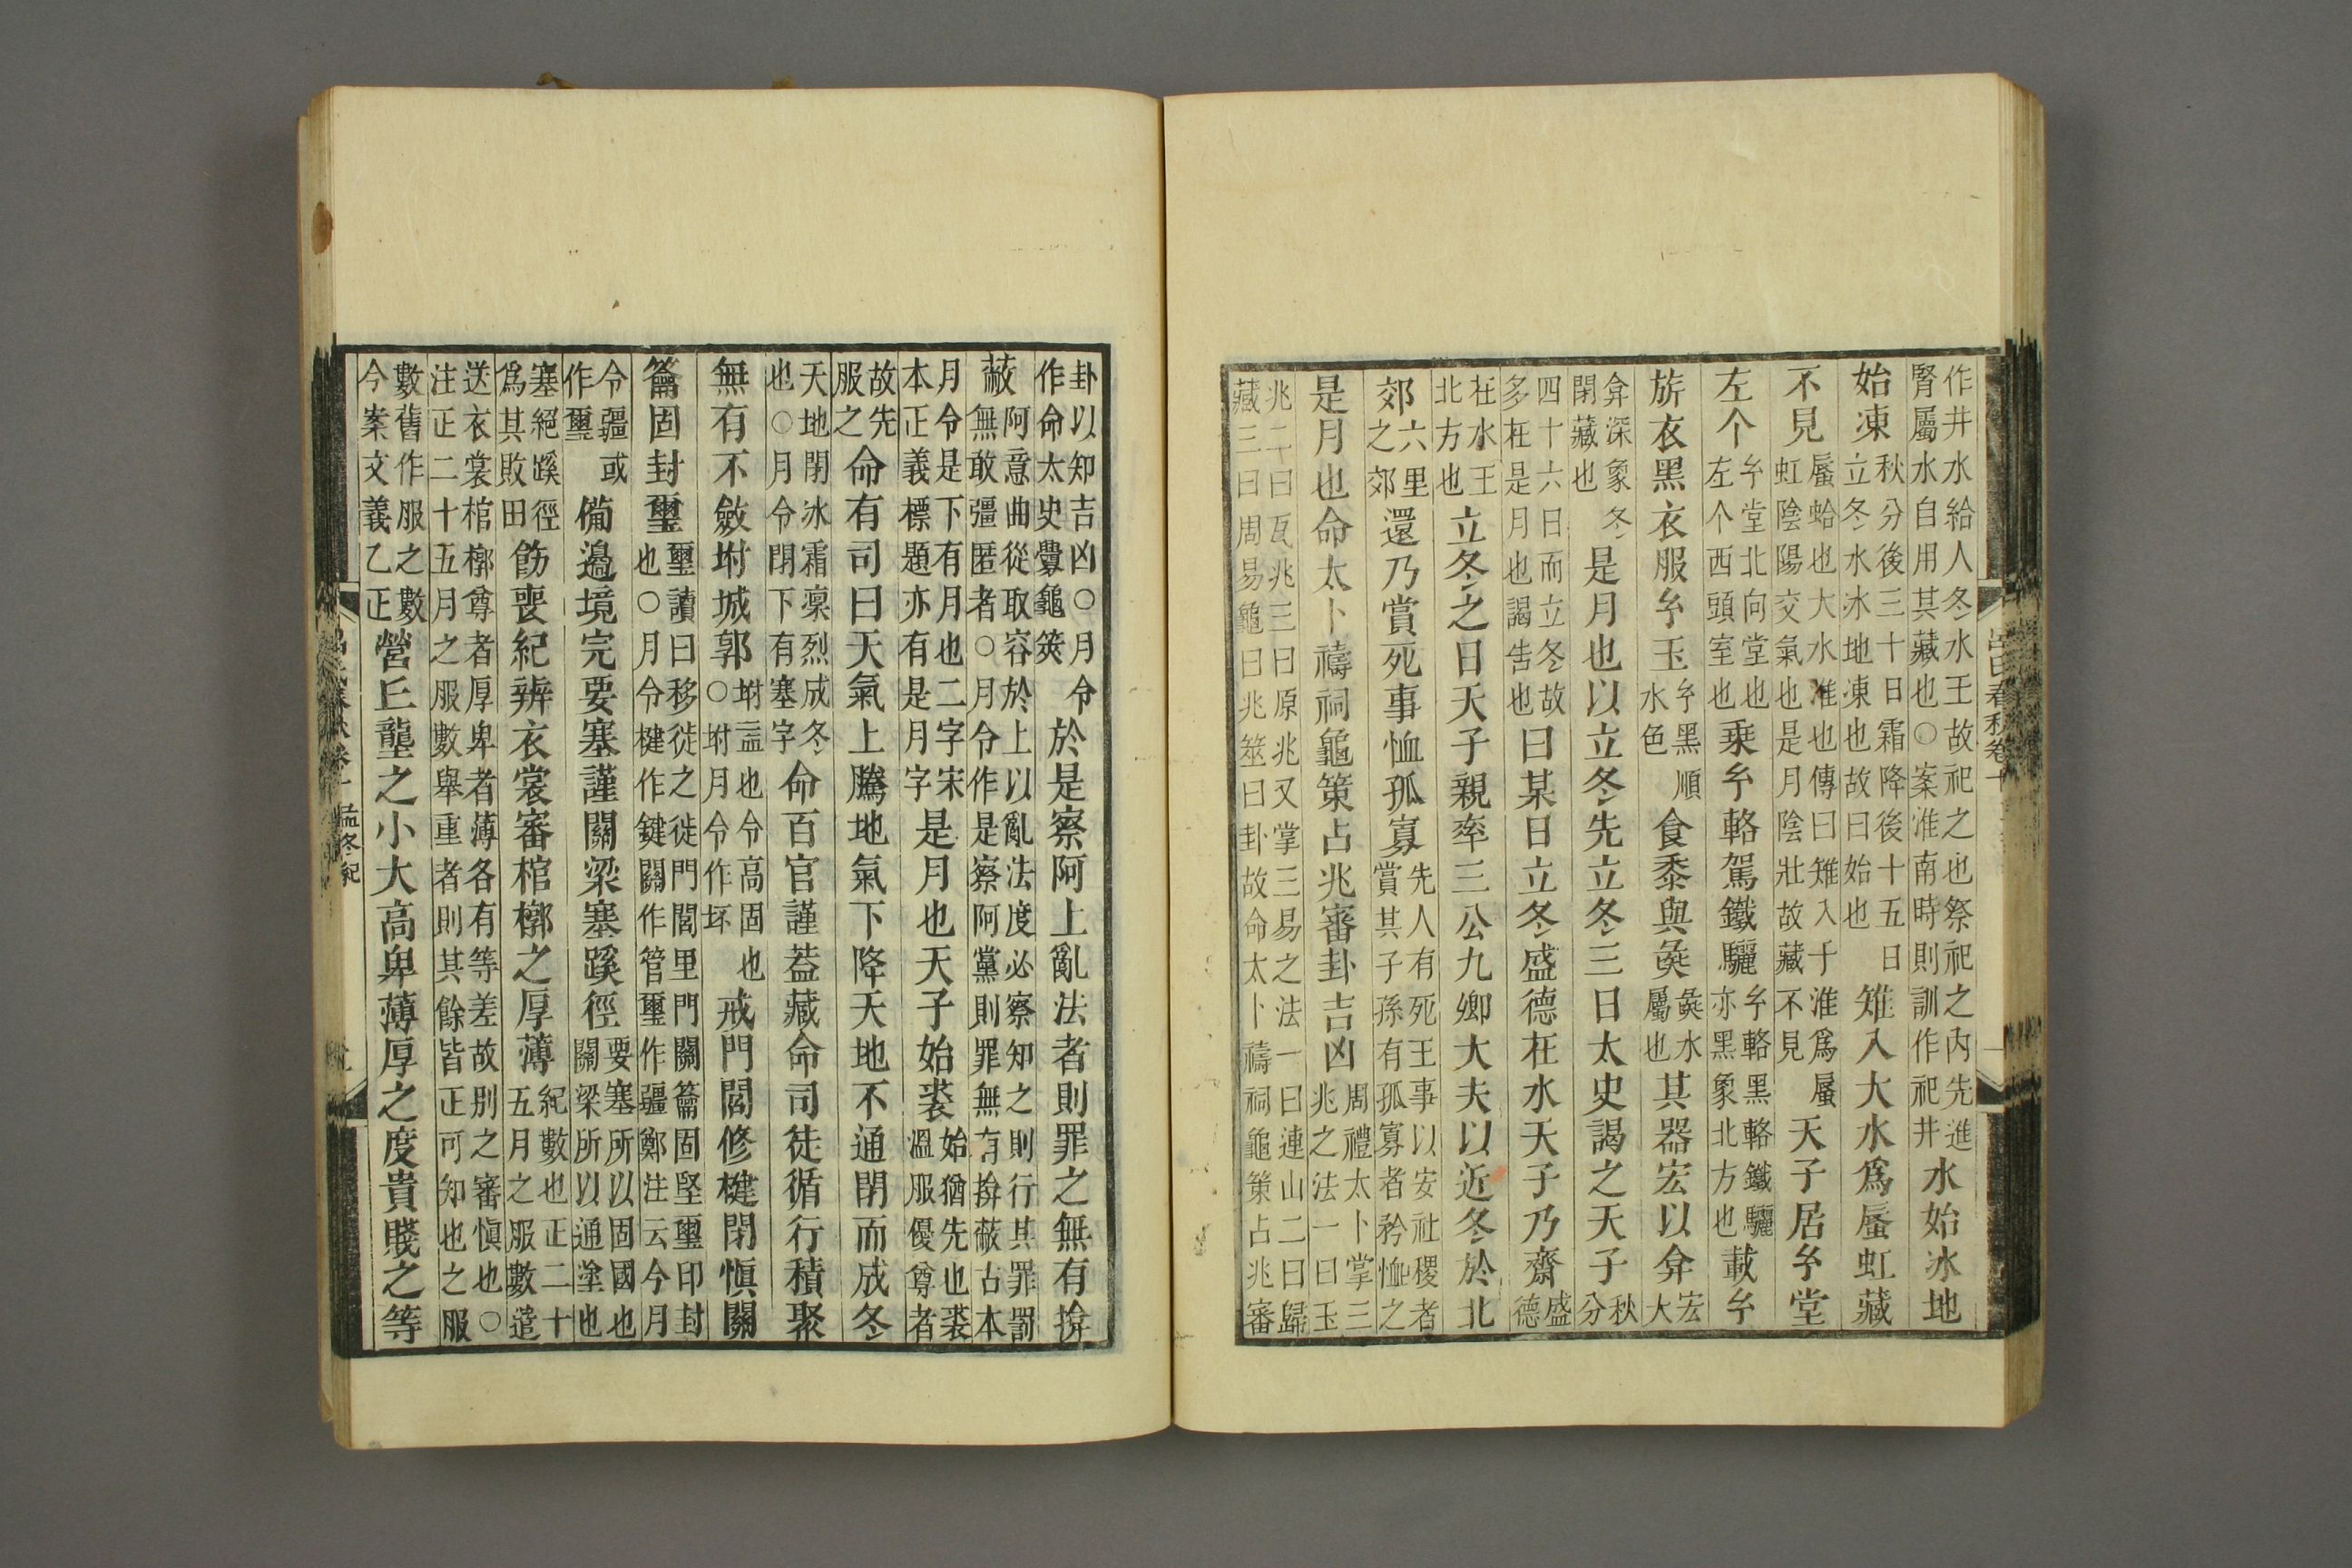 呂氏春秋卷十
作井水給人冬水王故祀之也祭祀之内先進腎屬水自用其藏也○案淮南時則訓作祀井水始冰地
始凍秋分後三十日霜降後十五日立冬水冰地凍也故曰始也雉入大水爲蜃虹藏
不見蜃蛤也大水淮也傳曰雉入于淮爲蜃虹陰陽交氣也是月陰壯故藏不見天子居玄堂
左个玄堂北向堂也左个西頭室也乗玄輅駕鐵驪玄輅黑輅鐵驪亦黑象北方也載玄
旂衣黑衣服玄玉玄黑順水色食黍與彘彘水屬也其器宏以弇宏大
弇深象冬閉藏也是月也以立冬先立冬三日太史謁之天子秋分
四十六日而立冬故多在是月也謁告也曰某日立冬盛德在水天子乃齋盛德
在水王北方也立冬之日天子親率三公九卿大夫以迎冬於北
郊六里之郊還乃賞死事恤孤寡先人有死王事以安社稷者賞其子孫有孤寡者矜恤之
是月也命太卜禱祠龜策占兆審卦吉凶周禮太卜掌三兆之法一曰玉
兆二曰瓦兆三曰原兆又掌三易之法一曰連山二曰歸藏三曰周易龜曰兆筮曰卦故命太卜禱祠龜策占兆審
卦以知吉凶○月令作命太史釁龜筴於是察阿上亂法者則罪之無有揜
蔽阿意曲從取容於上以亂法度必察知之則行其罪罰無敢彊匿者○月令作是察阿黨則罪無有揜蔽古本
月令是下有月也二字宋本正義標題亦有是月字是月也天子始裘始猶先也裘溫服優尊者
故先服之命有司曰天氣上騰地氣下降天地不通閉而成冬
天地閉冰霜凛烈成冬也○月令閉下有塞字命百官謹葢藏命司徒循行積聚
無有不斂坿城郭坿益也令高固也○坿月令作坏戒門閭修楗閉愼關
籥固封璽璽讀曰移徙之徙門閭里門關籥固堅璽印封也○月令楗作鍵關作管璽作疆鄭注云今月
令疆或作璽備邊境完要塞謹關梁塞蹊徑要塞所以固國也關梁所以通塗也
塞絕蹊徑爲其敗田飭喪紀辨衣裳審棺槨之厚薄紀數也正二十五月之服數遣
送衣裳棺槨尊者厚卑者薄各有等差故别之審愼也○注正二十五月之服數舉重者則其餘皆正可知也之服
數舊作服之數今案文義乙正營丘壟之小大高卑薄厚之度貴賤之等
呂氏春秋卷十 孟冬紀